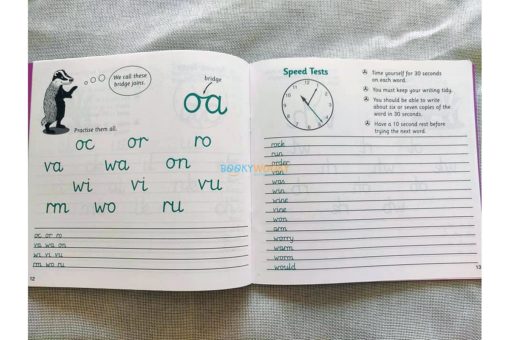 We call these
bridge joins.
bridge
oa
Practise them all.
oc or ro
va wa on
wi vi vu
rm wo ru
oc or ro
va wa on
wi vi vu
rm wo ru
12
Speed Tests
Time yourself for 30 seconds
on each word.
You must keep your writing tidy.
You should be able to write
about six or seven copies of the
word in 30 seconds.
Have a 10 second rest before
trying the next word.
rock
run
order
van
was
win
wine
vine
won
arm
worry
warm
worm
would
13